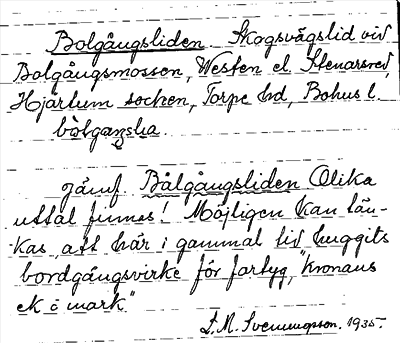 Bolgångsliden. Skogsvägslid vid
Bolgångsmossen, Westen el. Stenarsred,
Hjärtum socken, Torpe hd, Bohus l.
bòlgaŋsla.
jämf. Bålgångsliden Olika
uttal finnes! Möjligen kan tän-
kas, att här i gammal tid huggits
bordgångsvirke för fartyg, "Kronans
ek i mark"
S. M. Svenungson. 1935.